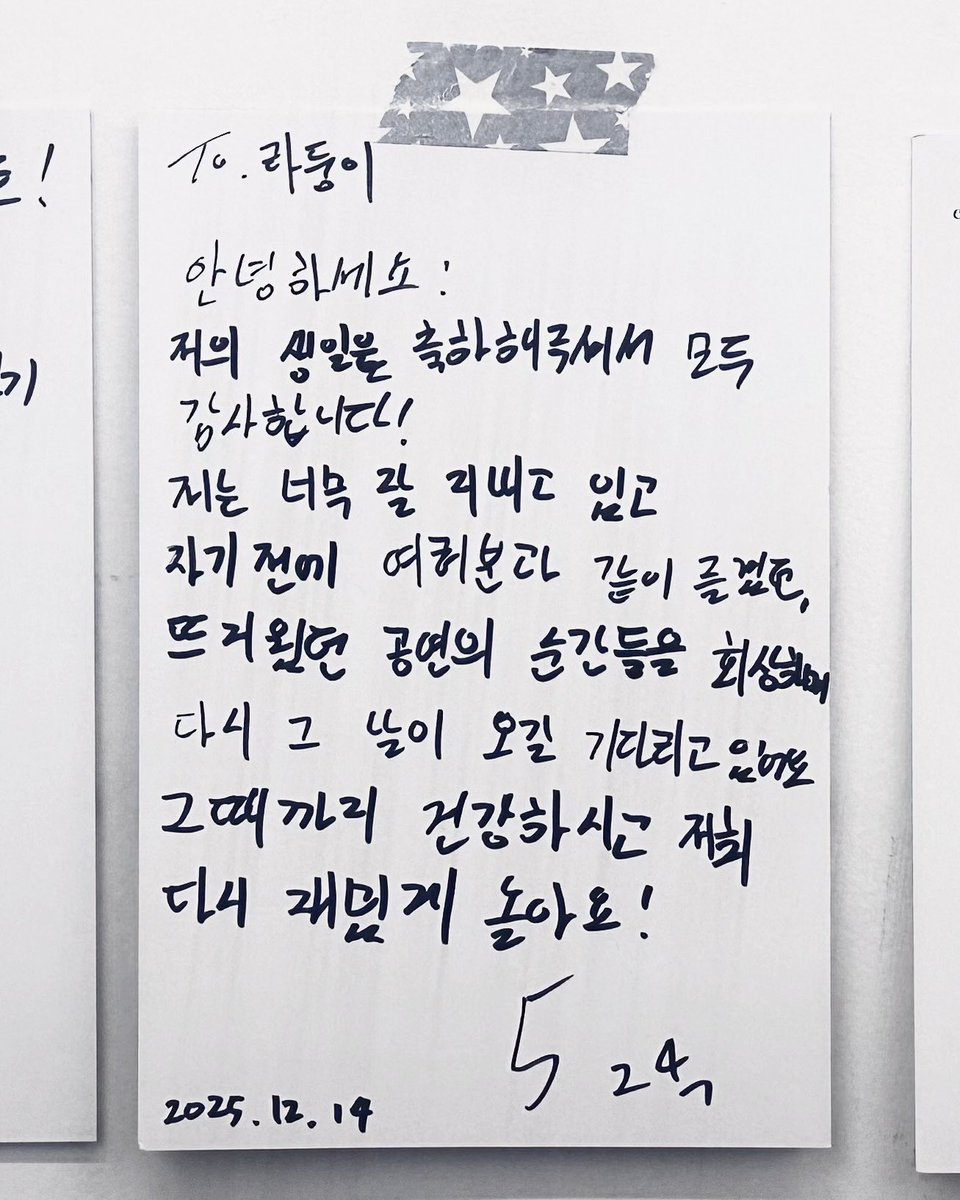 To. 라둥이
안녕하세요!
저의 생일을 축하해주셔서 모두
감사합니다!
저는 너무 잘 지내고 있고
자기 전에 여러분과 같이
뜨거웠던 공연의 순간들을 회상하며
다시 그 날이 오길 기다리고 있어요
그때까지 건강하시고 저희
다시 재밌게 놀아요!
5
2025.12.14